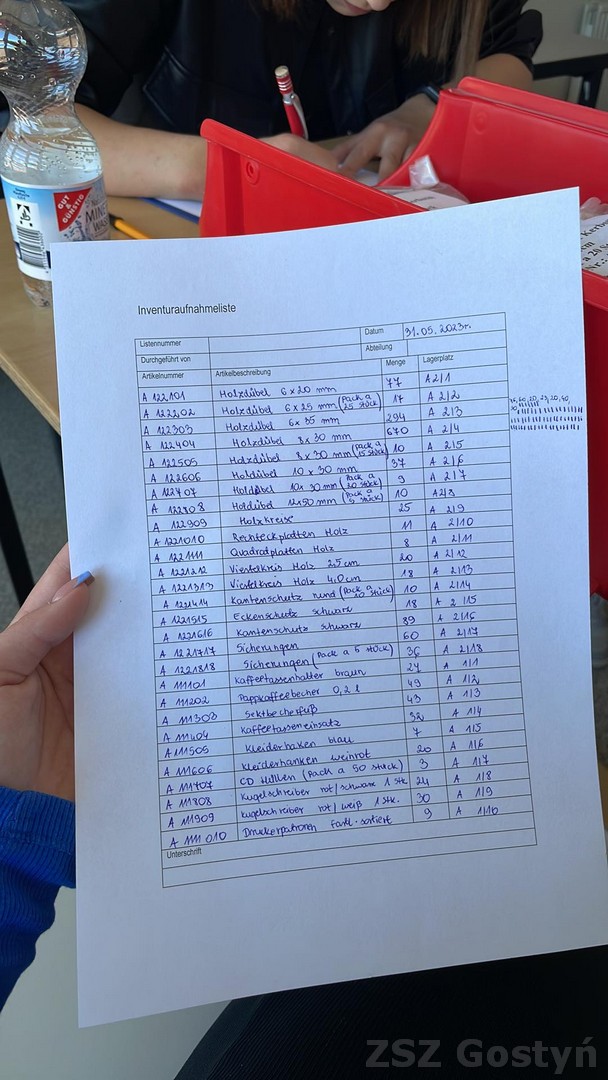 GUT & GÜNSTIG
Kerbs
Inventuraufnahmeliste
Listennummer Datum 31.05.2023r.
Durchgeführt von Abteilung
Artikelnummer Artikelbeschreibung Menge Lagerplatz
A 122101 Holzdübel 6x20 mm 77 A2/1
A 122202 Holzdübel 6x25 mm (Pack a 25 stück) 17 A 2/2
A 122303 Holzdübel 6x35 mm 294 A 2/3
A 122404 Holzdübel 8x30 mm 670 A 2/4
A 122505 Holzdübel 8x30 mm (Pack a 15 stück) 10 A 2/5
A 122606 Holdübel 10x30 mm 37 A 2/6
A 122707 Holdübel 10x30 mm (Pack a 20 stück) 9 A 2/7
A 122808 Holdübel 12x50 mm (Pack a 5 stück) 10 A2/8
A 122909 Holzkreise 25 A 2/9
A 1221010 Rechteckplatten Holz 11 A 2/10
A 122 1111 Quadratplatten Holz 8 A 2/11
A 1221212 Viertelkreis Holz 2.5cm 20 A 2/12
A 1221313 Viertelkreis Holz 4.0cm 18 A 2/13
A 1221414 Kantenschutz rund (Pack a 10 stück) 10 A 2/14
A 1221515 Eckenschutz schwarz 18 A 2/15
A 1221616 Kantenschutz schwarz 89 A 2/16
A 1221717 Sicherungen 60 A 2/17
A 1221818 Sicherungen (Pack a 5 stück) 36 A 2/18
A 111101 Kaffeetassenhalter braun 27 A 1/1
A 111202 Pappkaffeebecher 0,2 l 49 A 1/2
A 111303 Sektbecherfuß 43 A 1/3
A 111404 Kaffeetasseneinsatz 32 A 1/4
A 111505 Kleiderhaken blau 7 A 1/5
A 111606 Kleiderhanken weinrot 20 A 1/6
A 111707 CD Hüllen (Pack a 50 stück) 3 A 1/7
A 111808 Kugelschreiber rot/schwarz 1 stk. 24 A 1/8
A 111909 Kugelschreiber rot/weiß 1 stk. 30 A 1/9
A 1111010 Druckerpatronen farbl. sortiert 9 A 1/10
Unterschrift
ZSZ Gostyń